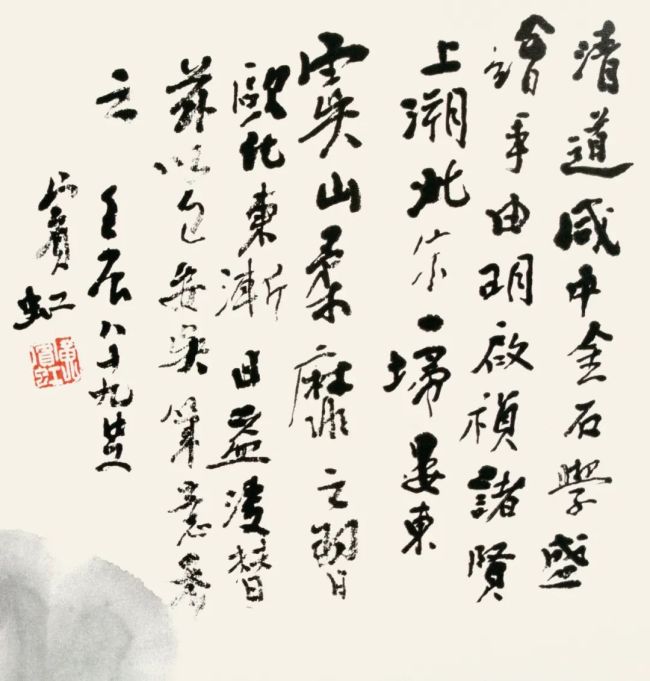 清道咸中金石學盛
繪事由明啟禎諸賢
上溯北宋一埽婁東
虞山柔靡之習
歐化東漸日益淩替
茲以包安吳筆意寫
之 壬辰八十九叟
賓虹
黃賓虹